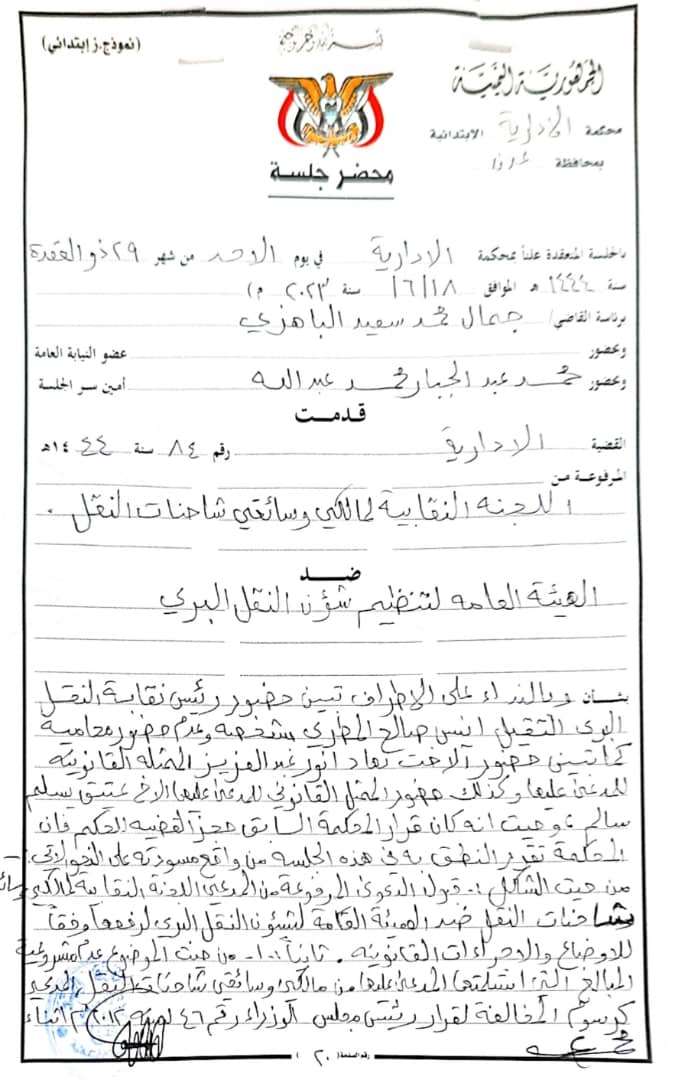 بسم الله الرحمن الرحيم
(نموذج.ز إبتدائي)
الجمهورية اليمنية
محكمة الادارية الابتدائية
بمحافظة عدن
محضر جلسة
بالجلسة المنعقدة علناً بمحكمة الادارية في يوم الاحد من شهر ٢٩ ذو القعدة
سنة ١٤٤٤ هـ الموافق ٦/١٨ سنة ٢٠٢٣ م)
برئاسة القاضي/ جمال محمد سعيد الباهزي
وحضور عضو النيابة العامة
وحضور محمد عبد الجبار محمد عبدالله أمين سر الجلسة
قدمت
القضية الادارية رقم ٨٤ سنة ١٤٤٤هـ
المرفوعة من
اللجنه النقابية لمالكي وسائقي شاحنات النقل .
ضد
الهيئة العامه لتنظيم شؤن النقل البري
بشان وبالنداء على الاطراف تبين حضور رئيس نقابة النقل
البري الثقيل انس صالح المطري بشخصه وعدم حضور محامية
كما تبين حضور الاخت نهاد انور عبدالعزيز الممثله القانونيه
للمدعى عليها وكذلك حضور الممثل القانوني للمدعى عليها الاخ عتيق يسلم
سالم وحيث انه كان قرار المحكمة السابق حجز القضيه للحكم فان
المحكمة تقرر النطق به في هذه الجلسه من واقع مسودته على النحو الاتي :-
من حيث الشكل :- قبول الدعوى المرفوعة من المدعي اللجنة النقابية لمالكي وسائقي
شاحنات النقل ضد الهيئة العامة لشؤون النقل البري لرفعها وفقاً
للاوضاع والاجراءات القانونيه . ثانياً :- ١- من حيث الموضوع عدم مشروعية
المبالغ التي استلمتها المدعى عليها من مالكي وسائقي شاحنات النقل المدعي
كرسوم المخالفة لقرار رئيس مجلس الوزراء رقم ٤٦ لسنه ٢٠١٢م اثناء
رقم الصفحة ( ٢٠ )